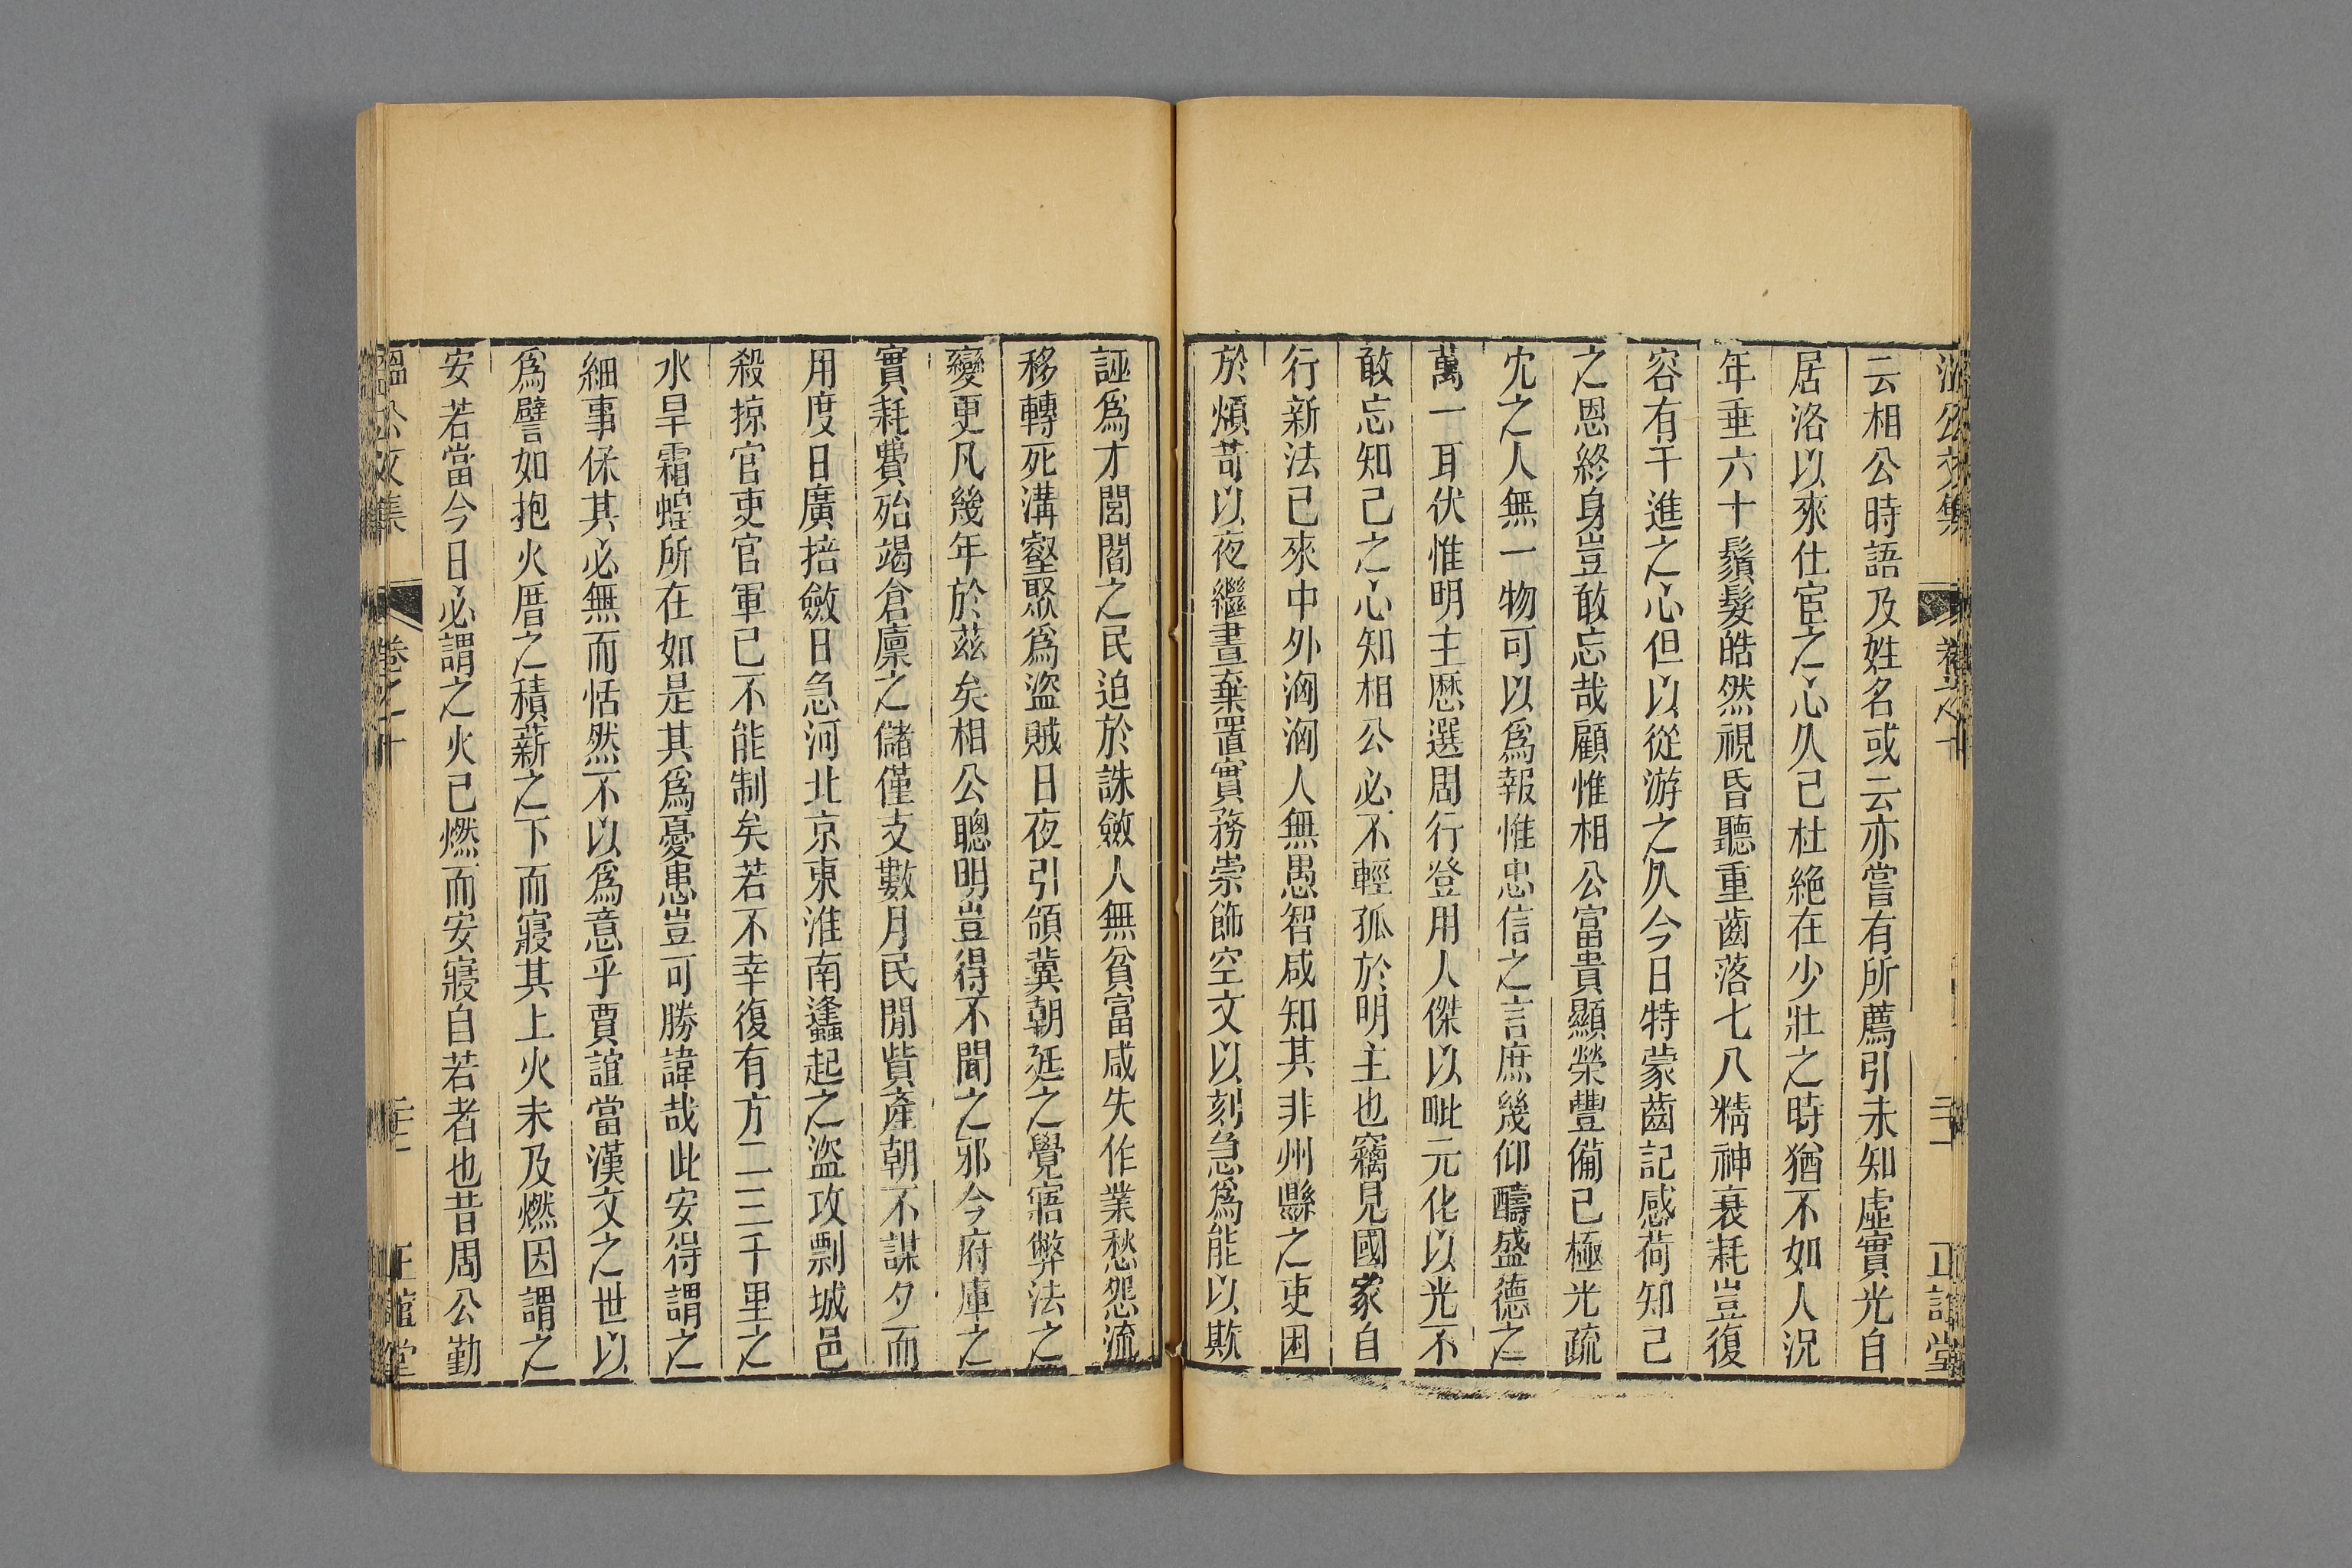 云相公時語及姓名或云亦嘗有所薦引未知虛實光自
居洛以來仕宦之心久已杜絕在少壯之時猶不如人況
年垂六十鬚髮皓然視昏聽重齒落七八精神衰耗豈復
容有干進之心但以從游之久今日特蒙齒記感荷知己
之恩終身豈敢忘哉顧惟相公富貴顯榮豐備已極光疏
冗之人無一物可以為報惟忠信之言庶幾仰醻盛德之
萬一耳伏惟明主歷選周行登用人傑以毗元化以光不
敢忘知己之心知相公必不輕孤於明主也竊見國家自
行新法已來中外洶洶人無愚智咸知其非州縣之吏困
於煩苛以夜繼晝棄置實務崇飾空文以刻急為能以欺
誣為才閭閻之民迫於誅斂人無貧富咸失作業愁怨流
移轉死溝壑聚為盜賊日夜引領冀朝廷之覺寤弊法之
變更凡幾年於茲矣相公聰明豈得不聞之邪今府庫之
實耗費殆竭倉廩之儲僅支數月民閒貲產朝不謀夕而
用度日廣掊斂日急河北京東淮南蠭起之盜攻剽城邑
殺掠官吏官軍已不能制矣若不幸復有方二三千里之
水旱霜蝗所在如是其為憂患豈可勝諱哉此安得謂之
細事保其必無而恬然不以為意乎賈誼當漢文之世以
為譬如抱火厝之積薪之下而寢其上火未及燃因謂之
安若當今日必謂之火已燃而安寢自若者也昔周公勤
溫公文集 卷之十 正誼堂